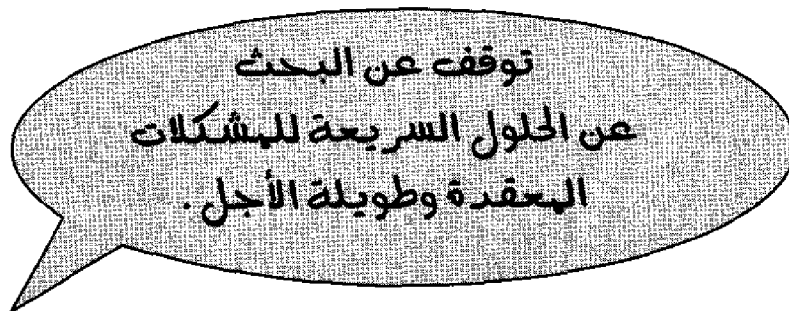 توقف عن البحث
عن الحلول السريعة للمشكلات
المعقدة وطويلة الأجل.